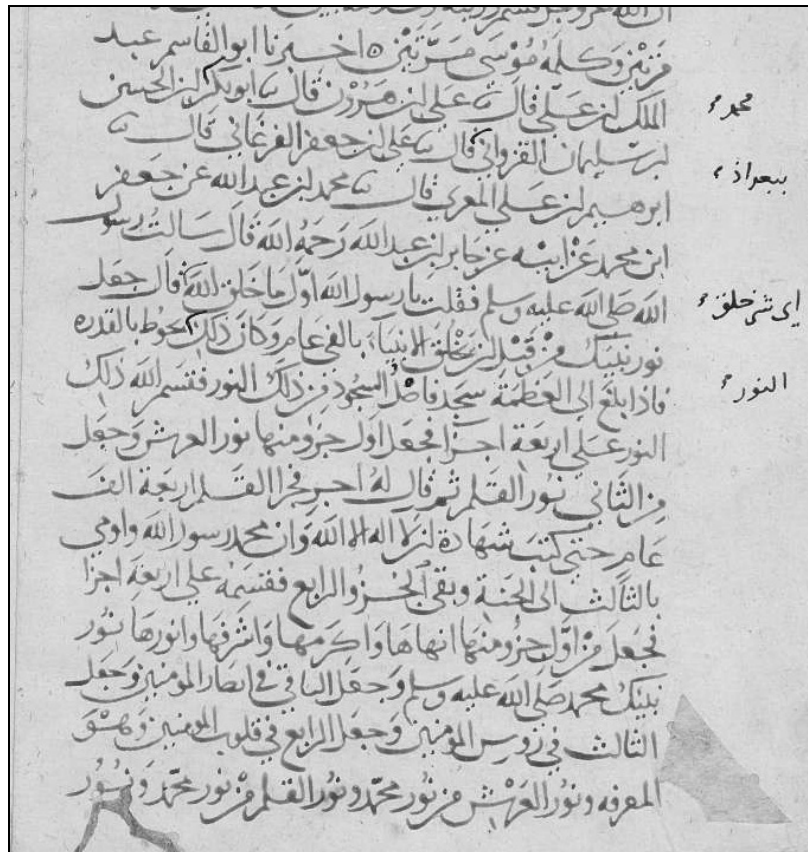 مرتين وكلمه موسى مرتين ه اخبرنا ابو القاسم عبد
الملك بن علي قال علي بن هرون قال ابو بكر بن الحسن
محمد
بن سليمان القزواني قال علي بن جعفر الفرغاني قال
ابرهيم بن علي المعري قال محمد بن عبد الله عن جعفر
ابن محمد عن ابيه عن جابر بن عبد الله رحمه الله قال سالت رسول
الله صلى الله عليه وسلم فقلت يا رسول الله اول ما خلق الله قال جعل
اي شي خلق
نور نبيك من قبل ان يخلق الانبياء بالفي عام وكان ذلك يحوط بالقدره
فاذا بلغ الى العظمة سجد فاضل السجود من ذلك النور فقسم الله ذلك
النور
النور علي اربعة اجزا فجعل اول جزو منها نور العرش وجعل
من الثاني نور القلم ثم قال له اجر فجرا القلم اربعة الف
عام حتى كتب شهادة ان لا اله الا الله وان محمد رسول الله واومي
بالثالث الى الجنة وبقي الجزو الرابع فقسمه علي اربعة اجزا
فجعل من اول جزو منها ابهاها واكرمها واشرفها وانورها نور
نبيك محمد صلى الله عليه وسلم وجعل الباقي في ابصار المومنين وجعل
الثالث في روس المومنين وجعل الرابع في قلوب المومنين وهو
المعرفه ونور العرش من نور محمد ونور القلم من نور محمد ونور